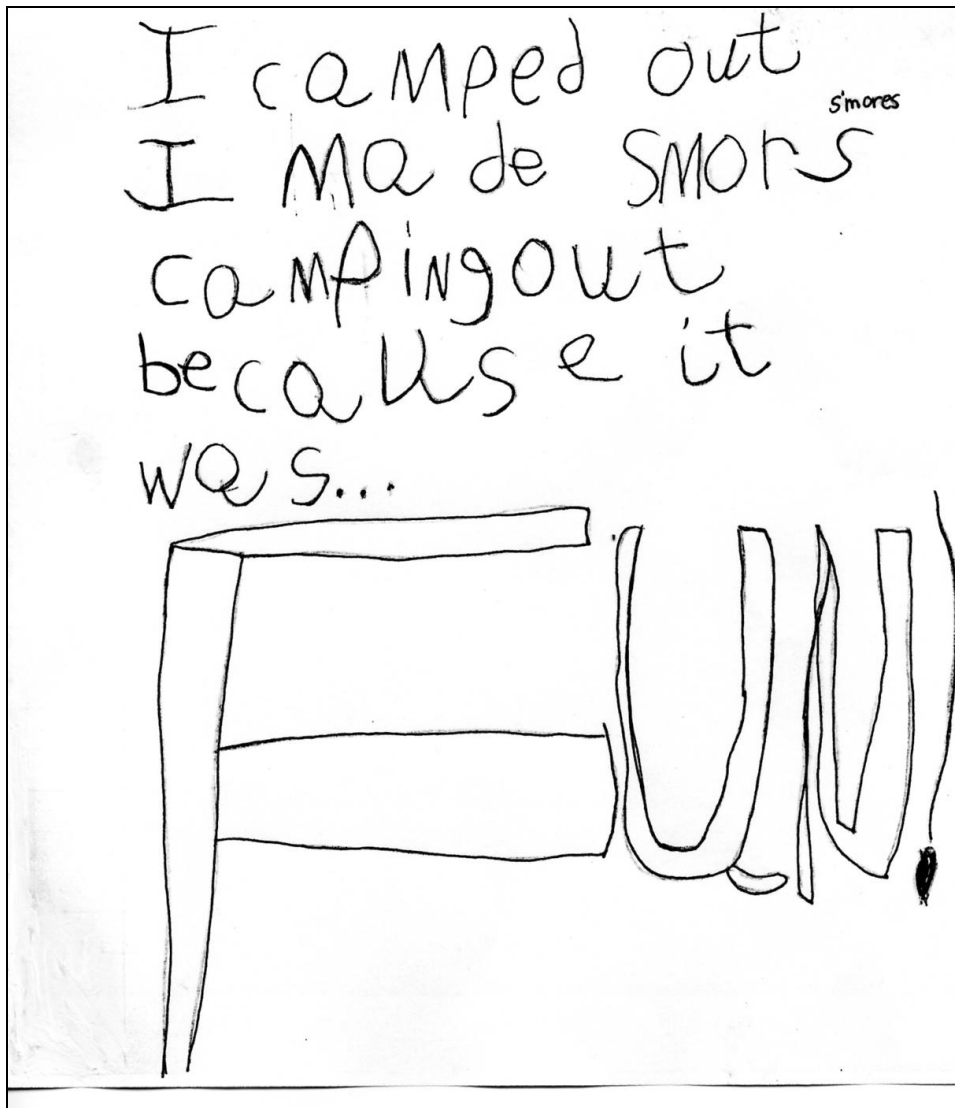 I camped out
s'mores
I made smors
campingout
because it
was...
FUN!